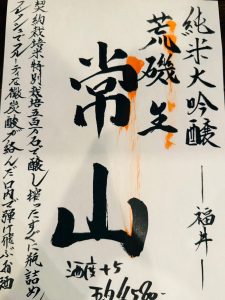 純米大吟醸 — 福井 —
荒磯 生
常山
酒度+5
契約栽培米特別栽培五百万石で醸し搾ったすぐに瓶詰め
フレッシュでフルーティな微炭酸が絡んだ口内で弾け飛ぶお酒